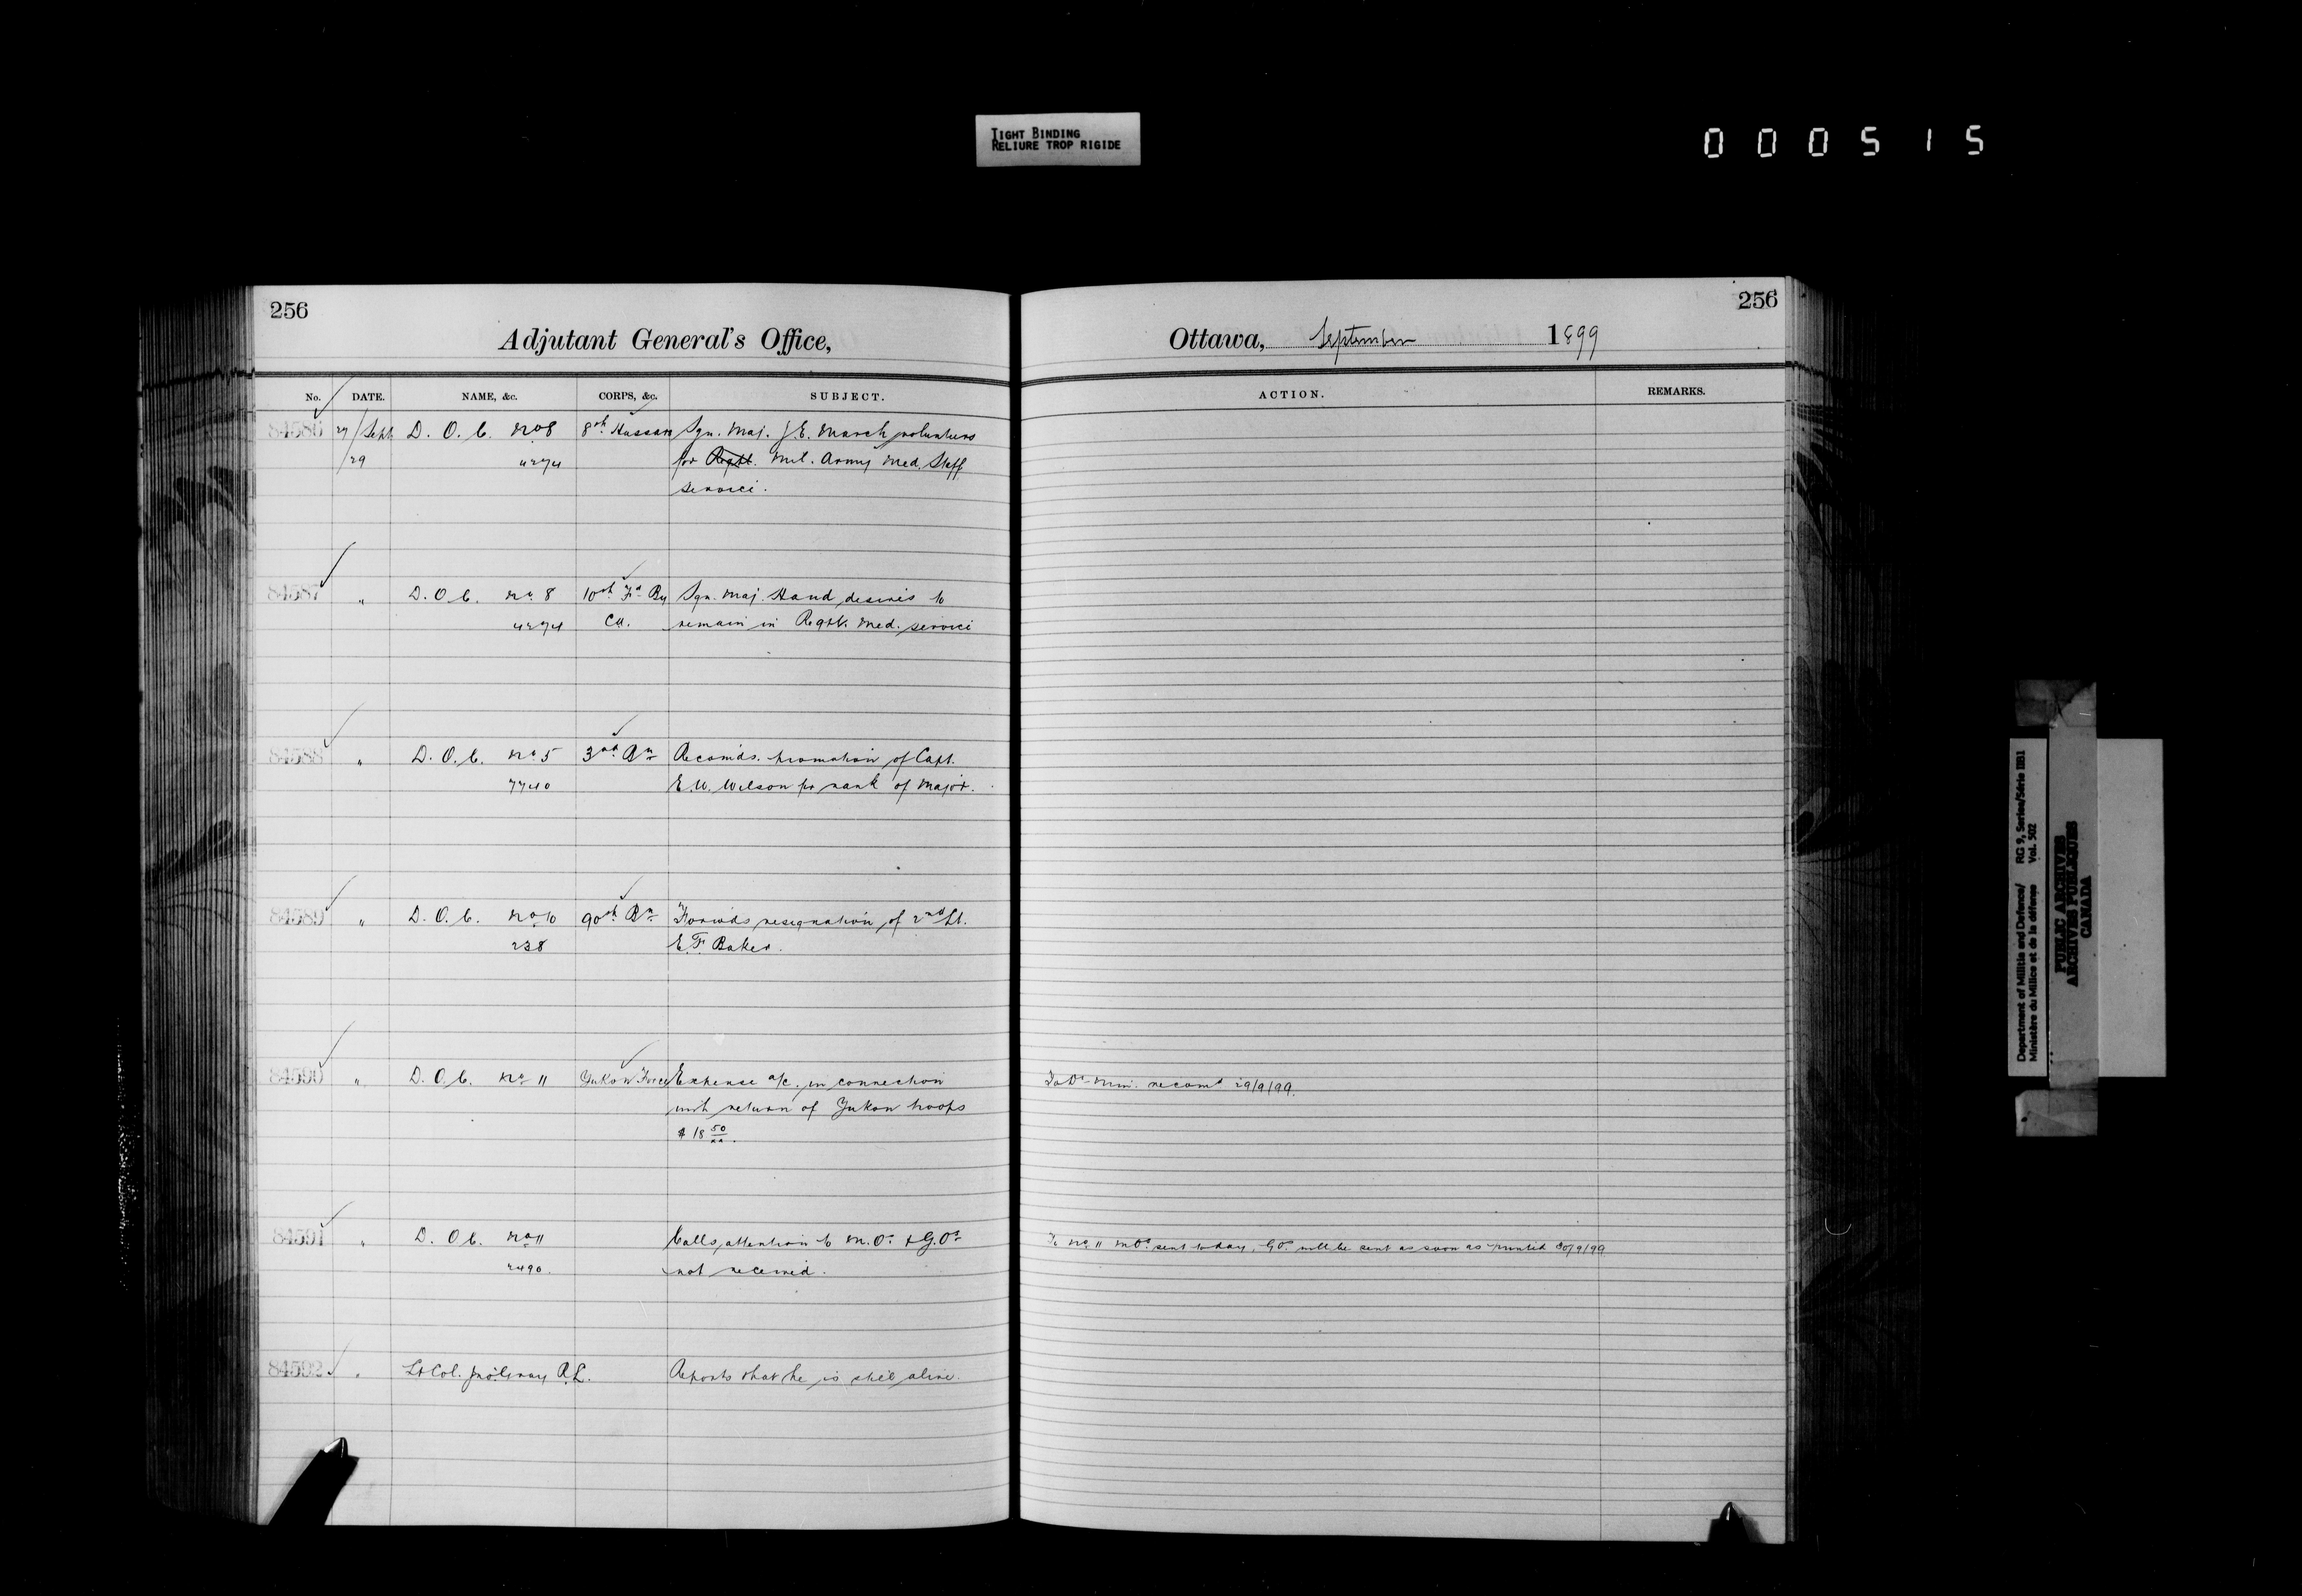 TIGHT BINDING
RELIURE TROP RIGIDE
0 0 0 5 1 5
256
Adjutant General's Office,
No. DATE. NAME, &c. CORPS, &c. SUBJECT.
84586 27/Sept D. O. C. No 8 8th Hussars Sgn. Maj. J.E. March volunteers
/29 4274 for Regtl. Mil. Army Med. Staff
service.
84587 " D. O. C. No 8 10th Fd By Sgn. Maj. Hand desires to
4274 CA. remain in Regtl. Med. service
84588 " D. O. C. No 5 3rd Bn Recomds. promotion of Capt.
7740 E.W. Wilson for rank of Major.
84589 " D. O. C. No 10 90th Bn Forwds resignation of 2nd Lt.
238 E.F. Baker.
84590 " D. O. C. No 11 Yukon Force Expense a/c. in connection
with return of Yukon troops
$ 18 50/xx.
84591 " D. O. C. No 11 Calls attention to M.Os & G.Os
2490. not received.
84592 " Lt Col. R.L. Reports that he is still alive.
256
Ottawa, September 1899
ACTION. REMARKS.
To Dy Min. recomd 29/9/99.
To No 11 MOs sent today, GOs will be sent as soon as printed 30/9/99
Department of Militia and Defence/ RG 9, Series/Série IIB1
Ministère du Milice et de la défense Vol. 502
PUBLIC ARCHIVES
ARCHIVES PUBLIQUES
CANADA